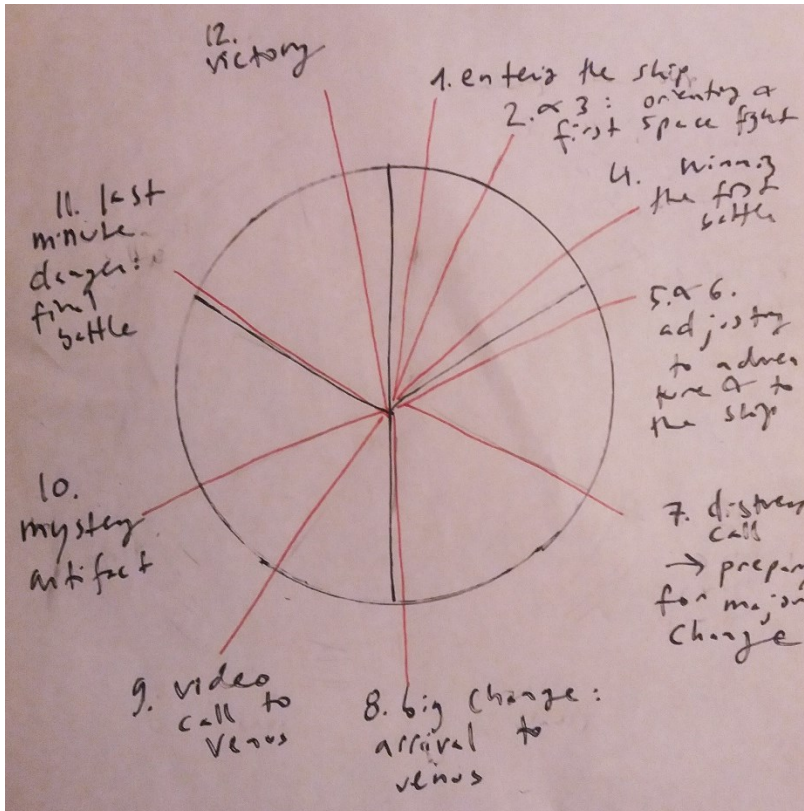 12.
victory
1. entering the ship
2. & 3: orienting &
first space fight
4. winning
the first
battle
5. & 6.
adjusting
to adven
ture & to
the ship
7. distress
call
→ prepar
for major
change
8. big change:
arrival to
venus
9. video
call to
venus
10.
mystery
artifact
11. last
minute
danger:
final
battle